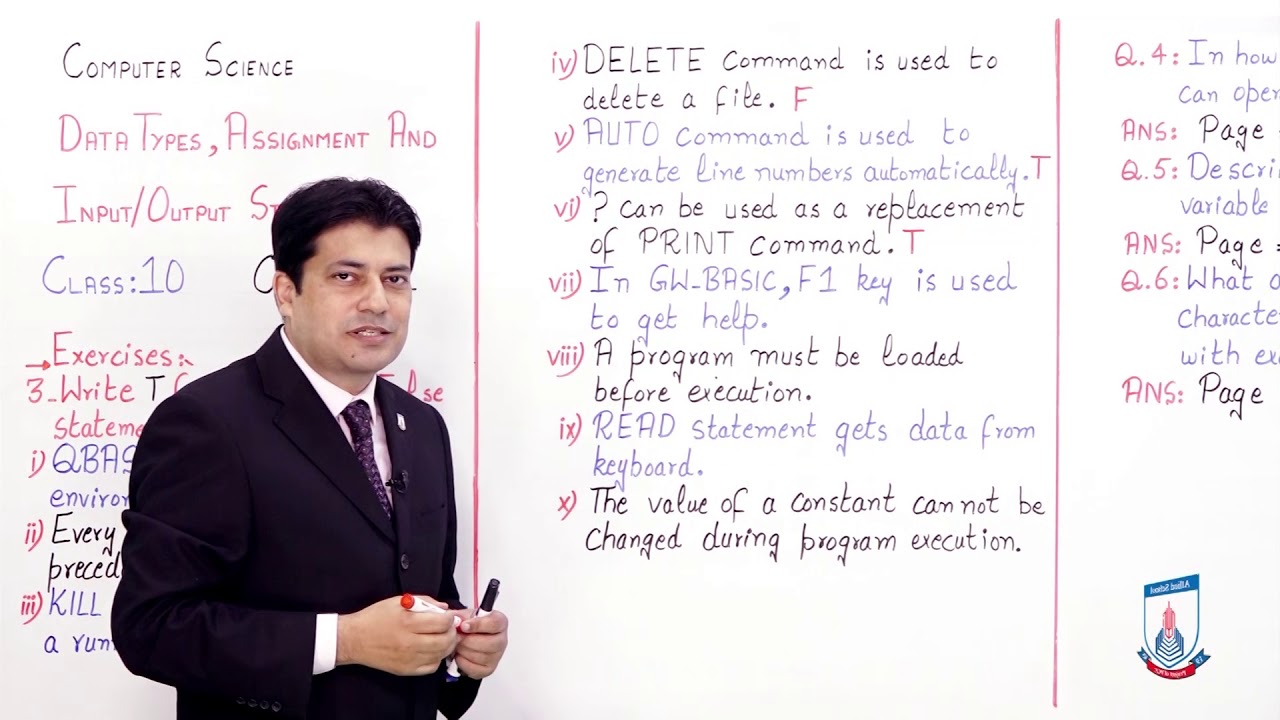 COMPUTER SCIENCE
DATA TYPES, ASSIGNMENT AND
INPUT/OUTPUT
CLASS:10
→Exercises:
3-Write T
i) QBAS
environ
ii) Every
preced
iii) KILL
a run
iv) DELETE command is used to
delete a file. F
v) AUTO command is used to
generate line numbers automatically. T
vi) ? can be used as a replacement
of PRINT command. T
vii) In GW-BASIC, F1 key is used
to get help.
viii) A program must be loaded
before execution.
ix) READ statement gets data from
keyboard.
x) The value of a constant can not be
changed during program execution.
Q.4: In how
can oper
ANS: Page =
Q.5: Descri
variable
ANS: Page =
Q.6: What
characte
with ex
ANS: Page
Allied School
Project of PGC